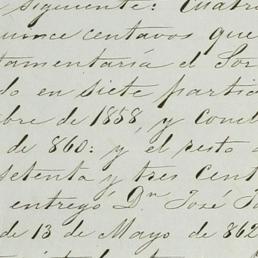 siguiente: Cuatro
quince centavos que
tamentaría el Sor
do en siete partid
bre de 1858, y concl
de 860: y el resto
setenta y tres cent
entregó Dn José
de 13 de Mayo de 862